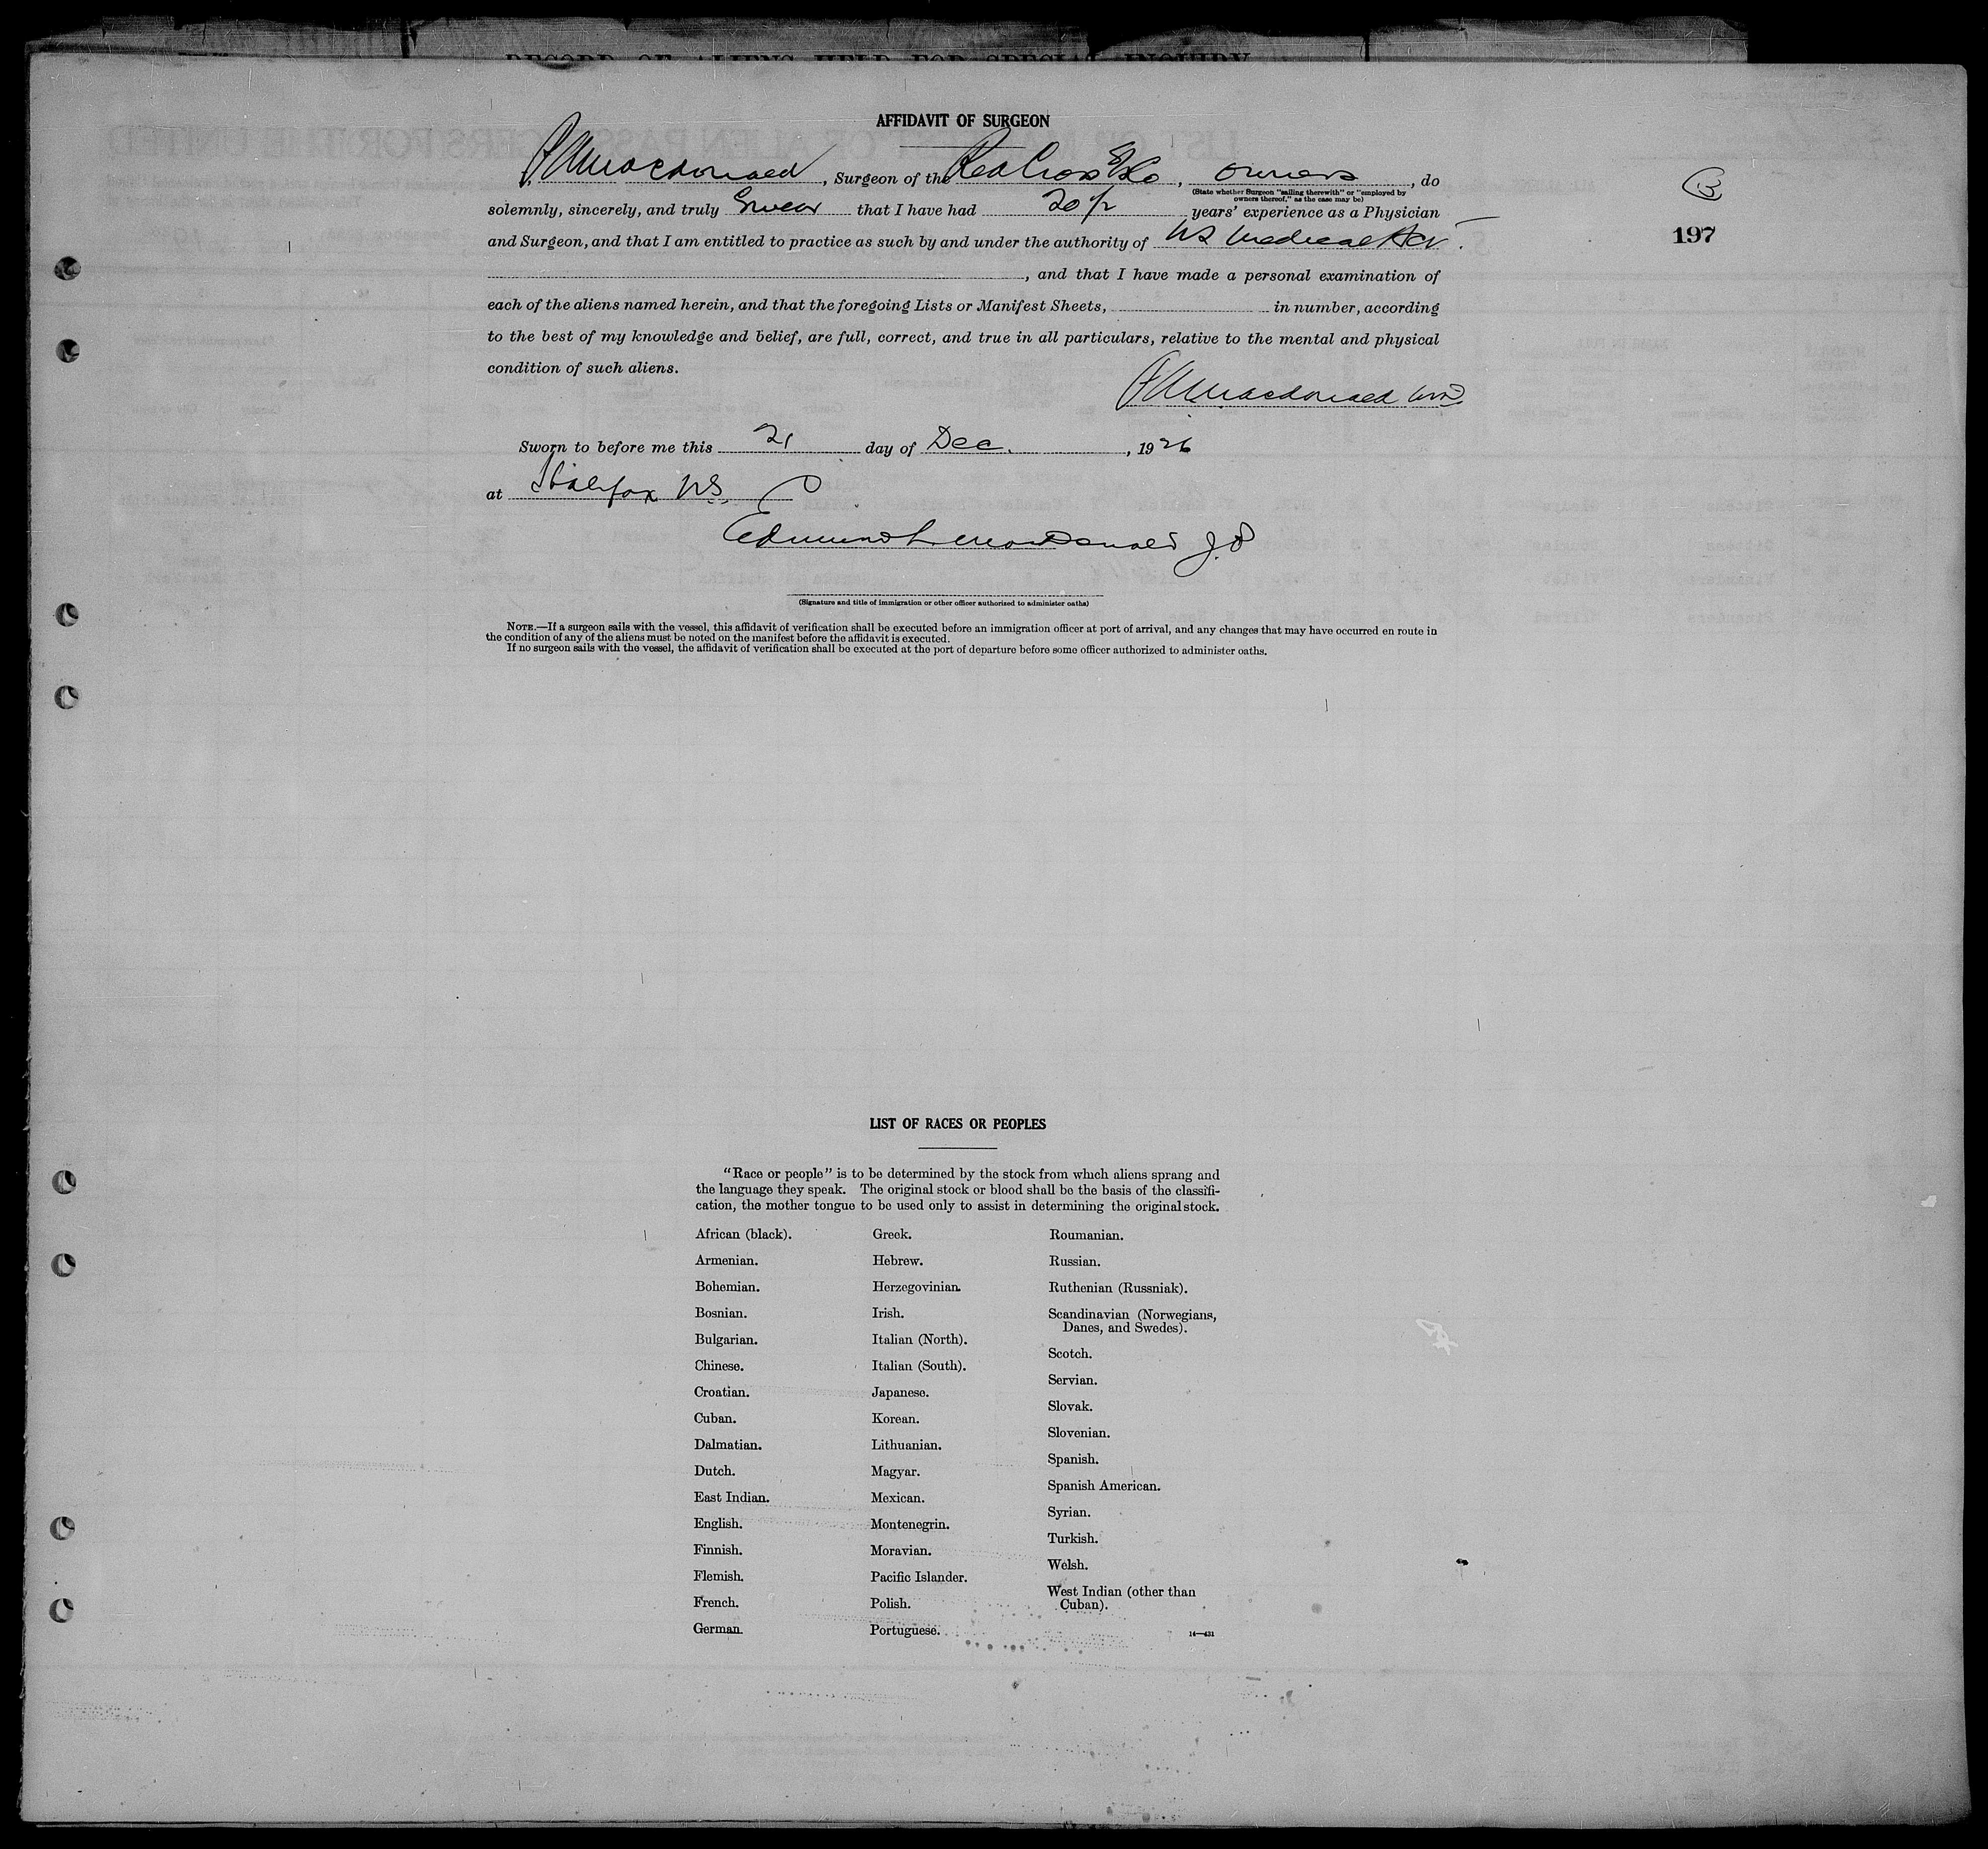 RECORD OF ALIENS HELD FOR SPECIAL INQUIRY
AFFIDAVIT OF SURGEON
I, Macdonald, Surgeon of the Red Cross SS Co, owners, do
(State whether Surgeon "sailing therewith" or "employed by
owners thereof," as the case may be)
B
solemnly, sincerely, and truly swear that I have had 20 years' experience as a Physician
and Surgeon, and that I am entitled to practice as such by and under the authority of NS Medical Act.
197
, and that I have made a personal examination of
each of the aliens named herein, and that the foregoing Lists or Manifest Sheets, in number, according
to the best of my knowledge and belief, are full, correct, and true in all particulars, relative to the mental and physical
condition of such aliens.
Macdonald MD
Sworn to before me this 21 day of Dec. , 1926
at Halifax NS.
Edmund L MacDonald J.P
(Signature and title of immigration or other officer authorized to administer oaths)
NOTE.—If a surgeon sails with the vessel, this affidavit of verification shall be executed before an immigration officer at port of arrival, and any changes that may have occurred en route in
the condition of any of the aliens must be noted on the manifest before the affidavit is executed.
If no surgeon sails with the vessel, the affidavit of verification shall be executed at the port of departure before some officer authorized to administer oaths.
LIST OF RACES OR PEOPLES
"Race or people" is to be determined by the stock from which aliens sprang and
the language they speak. The original stock or blood shall be the basis of the classifi-
cation, the mother tongue to be used only to assist in determining the original stock.
African (black).
Armenian.
Bohemian.
Bosnian.
Bulgarian.
Chinese.
Croatian.
Cuban.
Dalmatian.
Dutch.
East Indian.
English.
Finnish.
Flemish.
French.
German.
Greek.
Hebrew.
Herzegovinian.
Irish.
Italian (North).
Italian (South).
Japanese.
Korean.
Lithuanian.
Magyar.
Mexican.
Montenegrin.
Moravian.
Pacific Islander.
Polish.
Portuguese.
Roumanian.
Russian.
Ruthenian (Russniak).
Scandinavian (Norwegians,
Danes, and Swedes).
Scotch.
Servian.
Slovak.
Slovenian.
Spanish.
Spanish American.
Syrian.
Turkish.
Welsh.
West Indian (other than
Cuban).
14—431